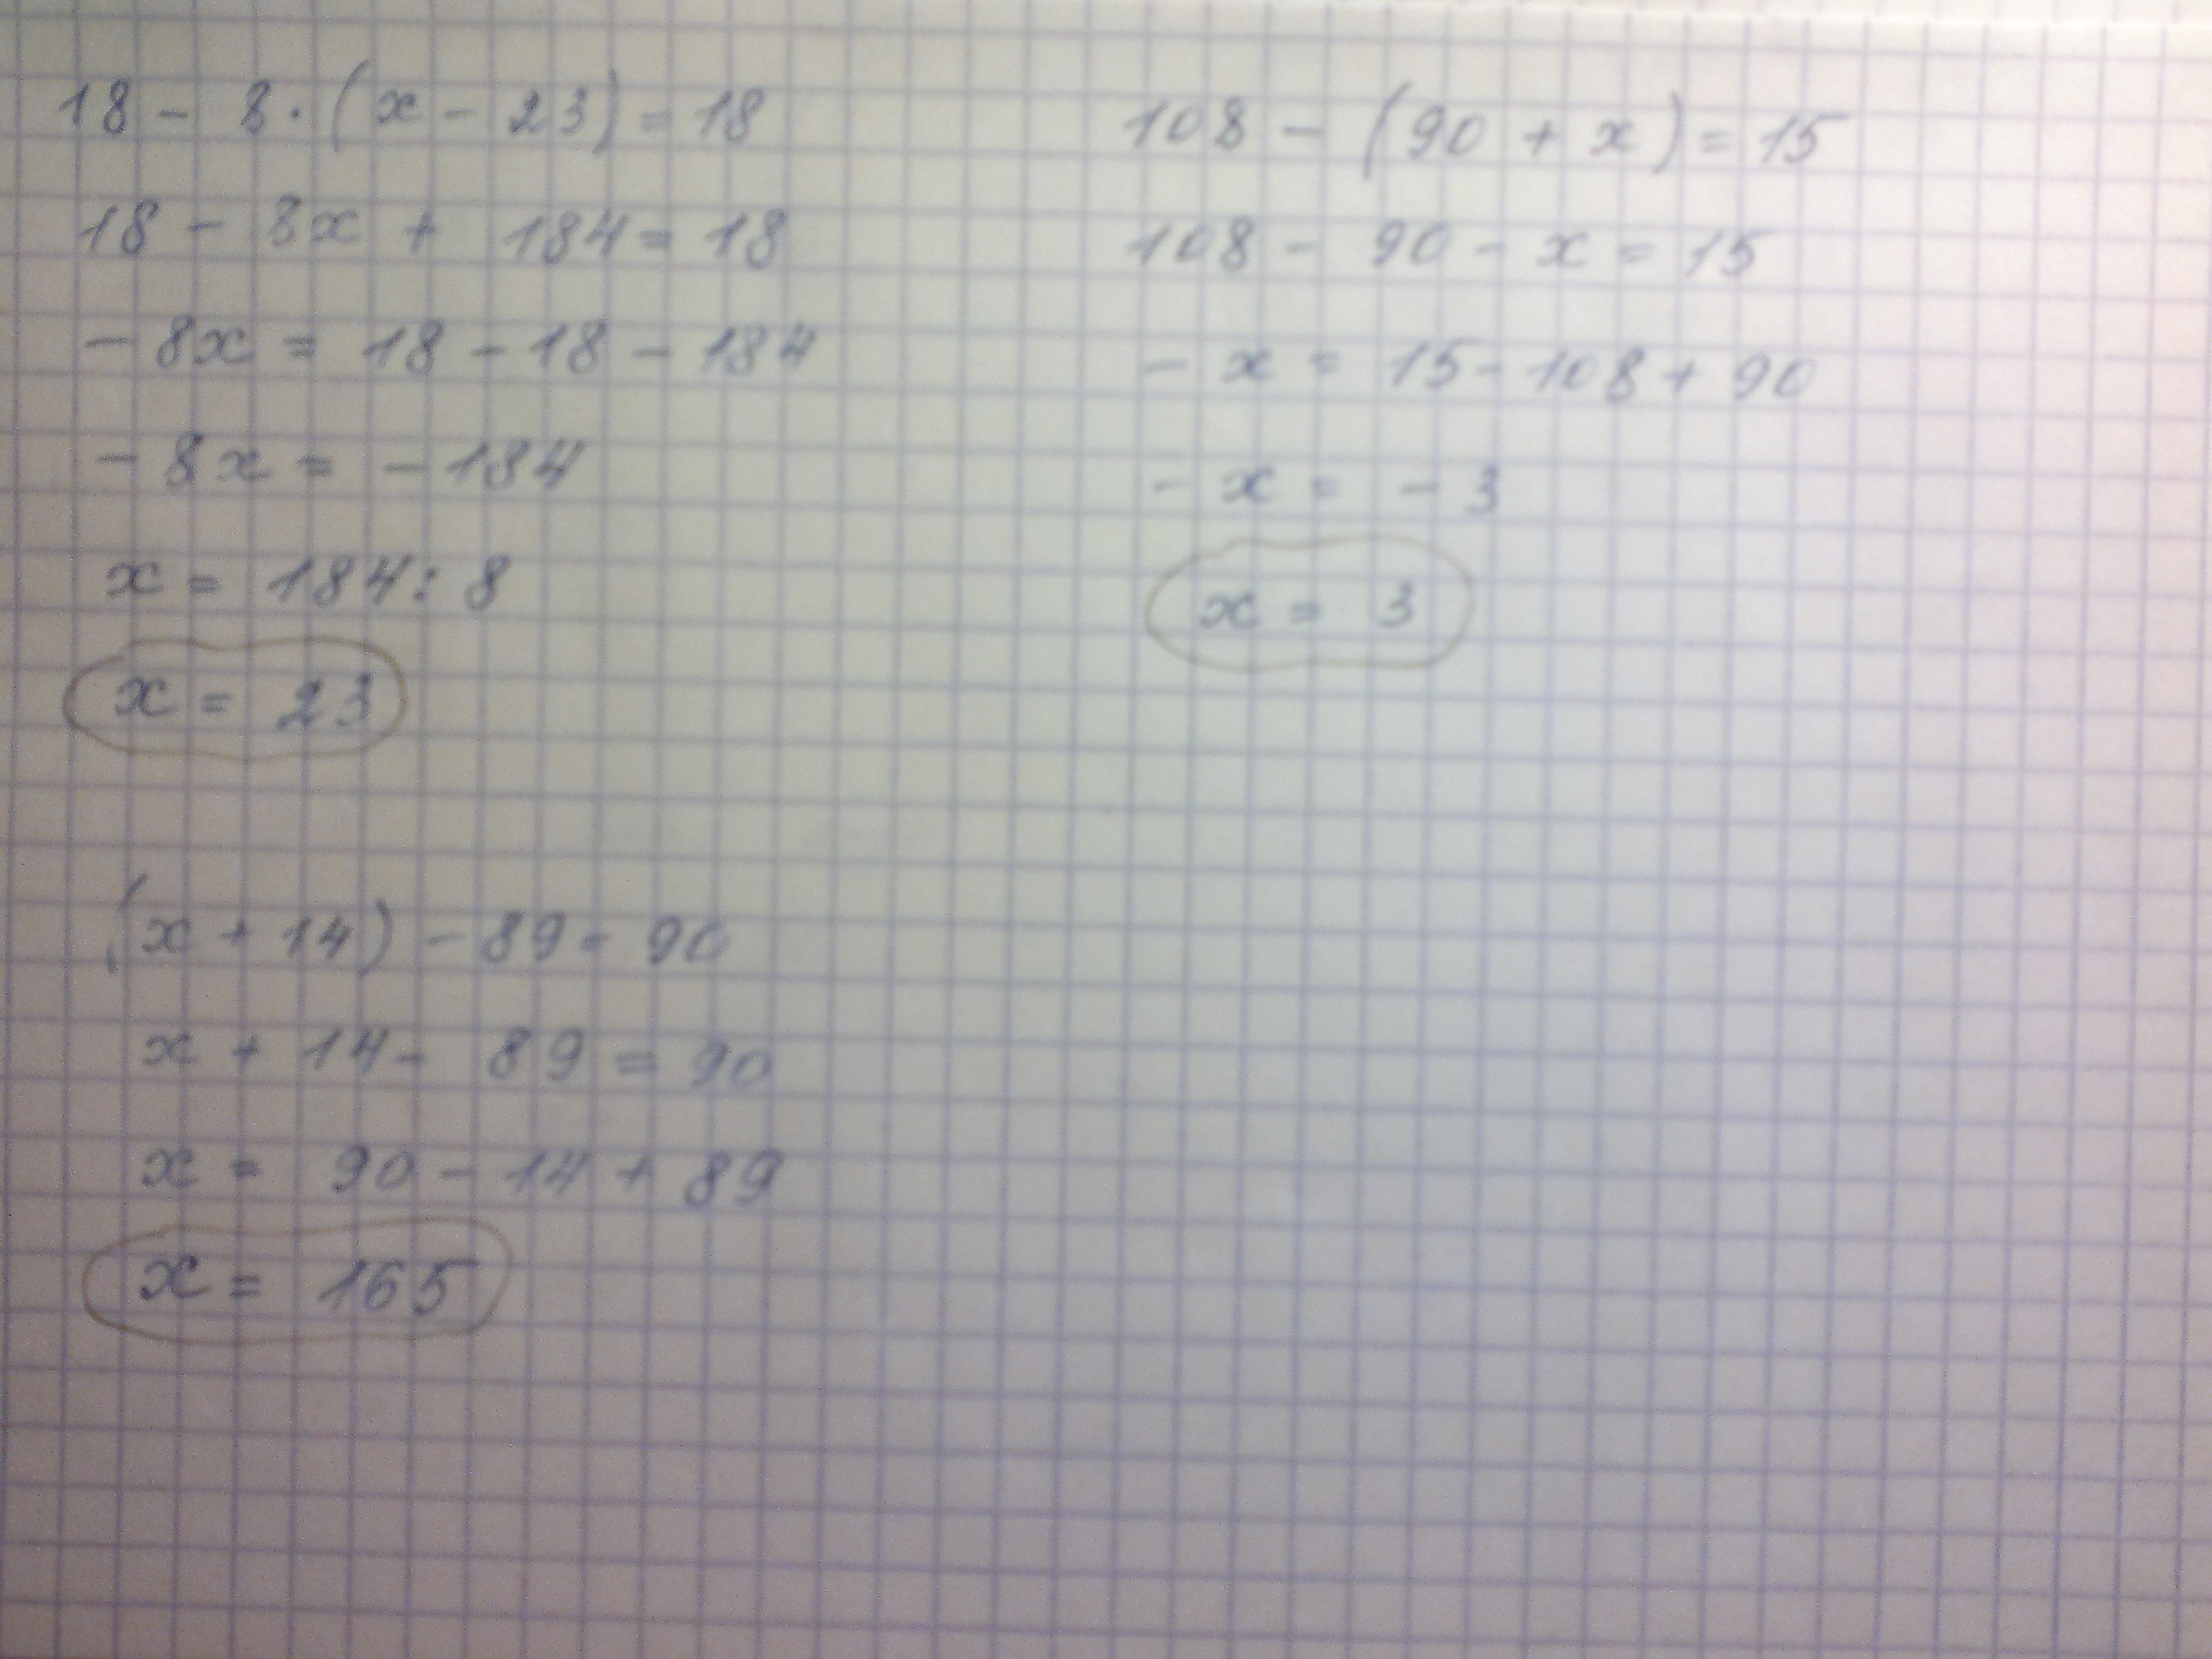 18 - 8 · (x - 23) = 18
18 - 8x + 184 = 18
- 8x = 18 - 18 - 184
- 8x = - 184
x = 184 : 8
x = 23
(x + 14) - 89 = 90
x + 14 - 89 = 90
x = 90 - 14 + 89
x = 165
108 - (90 + x) = 15
108 - 90 - x = 15
- x = 15 - 108 + 90
- x = - 3
x = 3